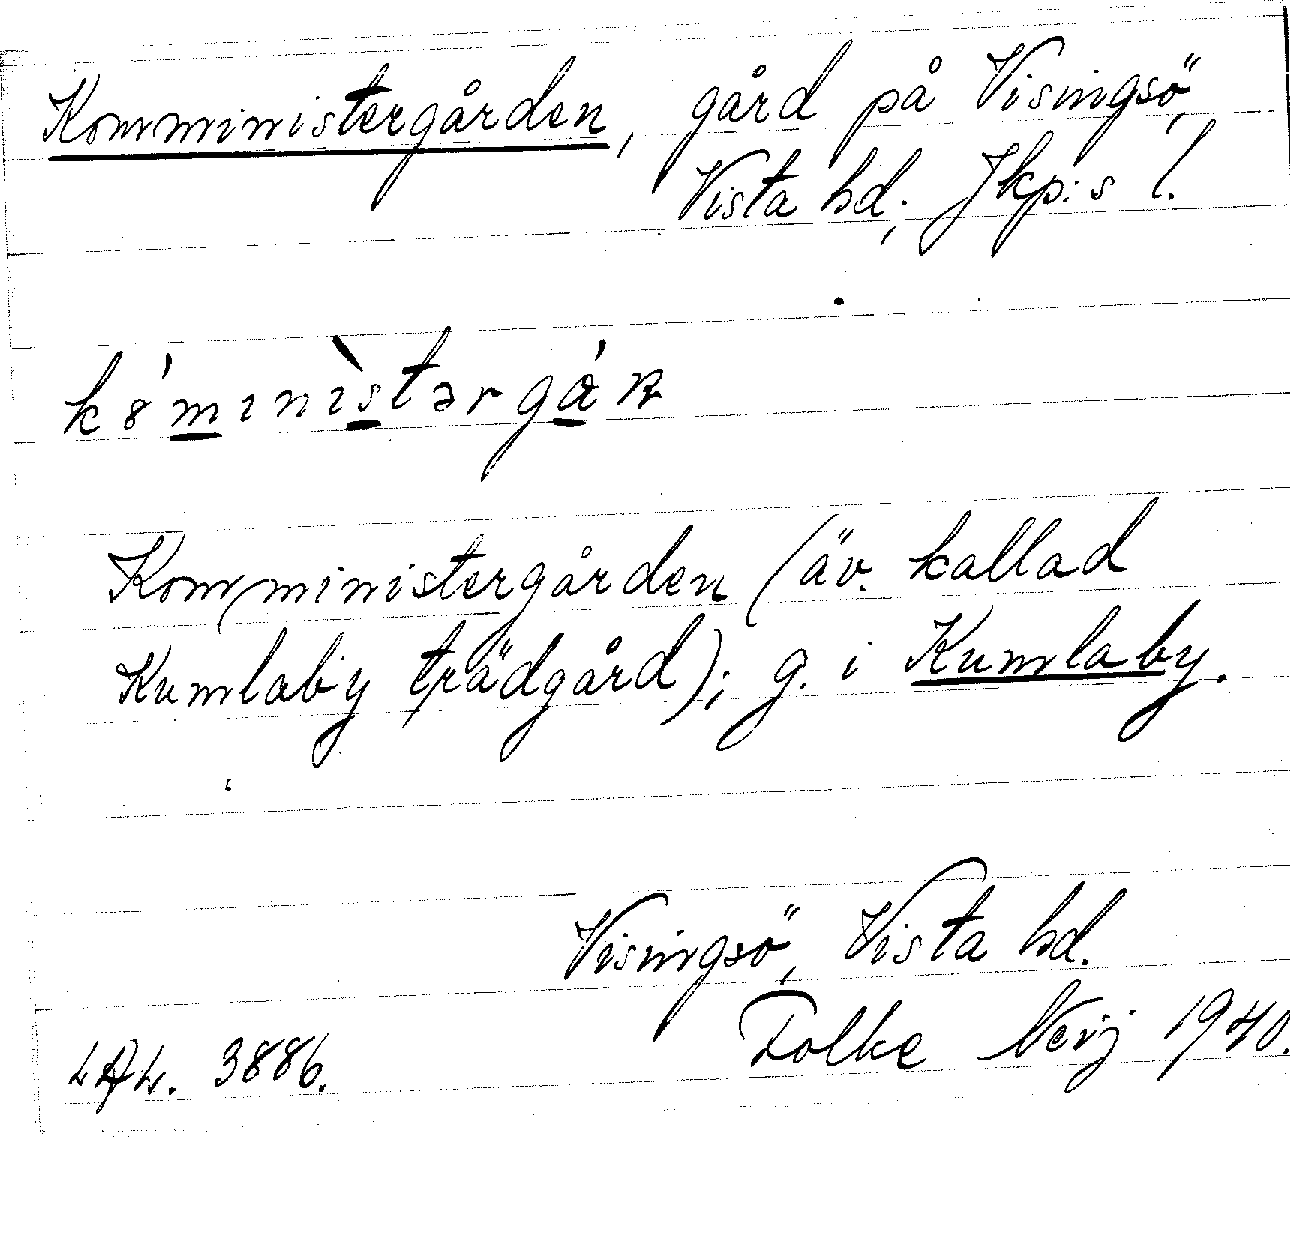 Komministergården, gård på Visingsö,
Vista hd; Jkp:s l.
Komministergården (äv. kallad
Kumlaby trädgård); g. i Kumlaby.
Visingsö, Vista hd.
Folke 1940.
3886.